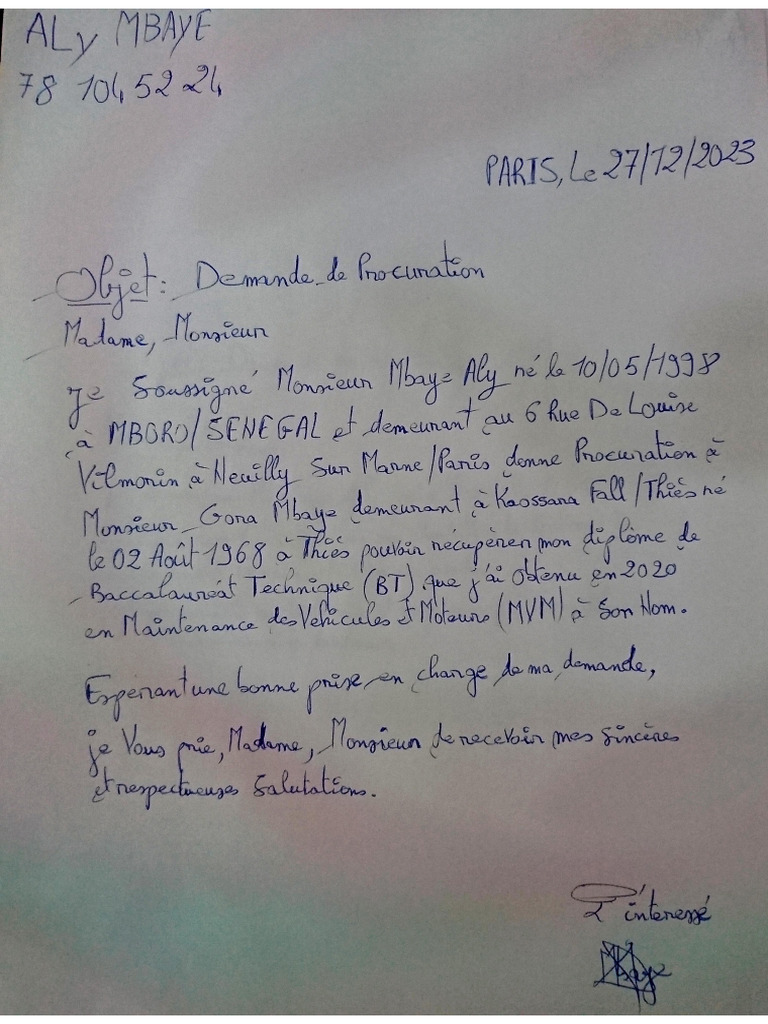 ALy MBAYE
78 104 52 24
PARIS, Le 27/12/2023
Objet: Demande de Procuration
Madame, Monsieur
Je Soussigné Monsieur Mbaye Aly né le 10/05/1998
à MBORO/SENEGAL et demeurant au 6 Rue De Louise
Vilmorin à Neuilly Sur Marne/Paris donne Procuration à
Monsieur Gora Mbaye demeurant à Kaossara Fall/Thiès né
le 02 Août 1968 à Thiès pouvoir récupérer mon diplôme de
Baccalauréat Technique (BT) que j'ai obtenu en 2020
en Maintenance des Vehicules et Moteurs (MVM) à Son Nom.
Espérant une bonne prise en charge de ma demande,
je Vous prie, Madame, Monsieur de recevoir mes Sincères
et respectueuses Salutations.
L'interessé
Mbaye